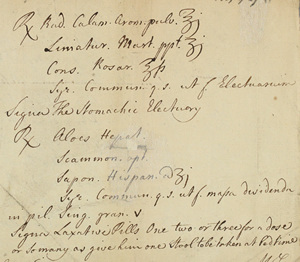 ℞ Rad. Calam. Arom. pulv. ʒj
Limatur. Mart. ppt. ʒj
Cons. Rosar. ℥ß
Syr. Commun. q.s. ut f Electuarium
Signa The Stomachic Electuary
℞ Aloes Hepat.
Scammon. ppt.
Sapon. Hispan. a ʒj
Syr. Commun. q.s. ut f massa dividenda
in pil. Sing. gran. v
Signa Laxative Pills One two or three for a dose
or so many as give him one Stool to be taken at Bedtime